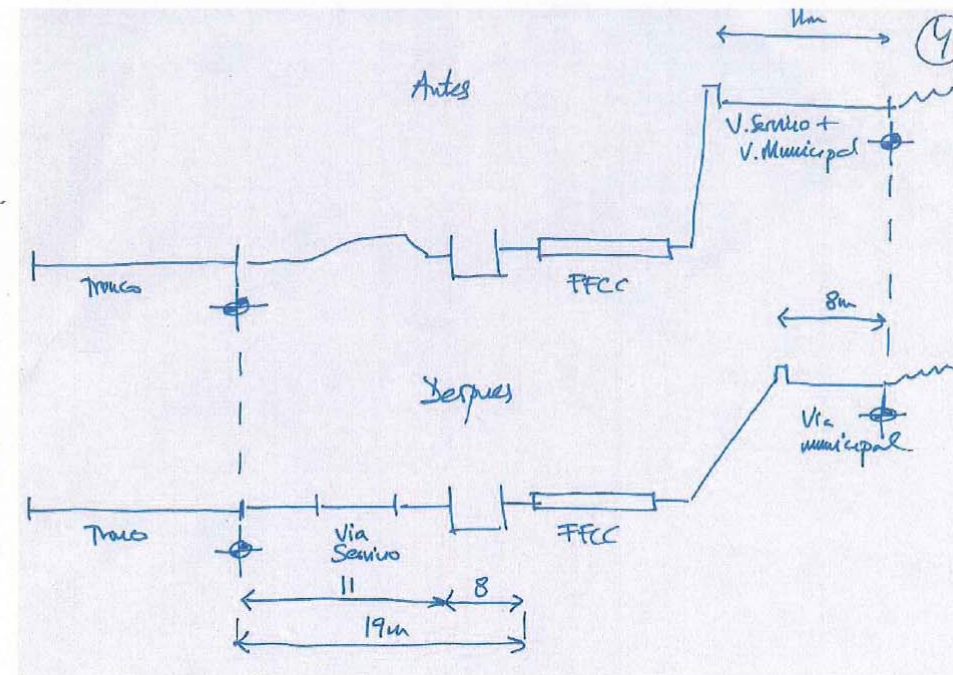 11m
4
Antes
V. Servicio +
V. Municipal
Tronco
FFCC
8m
Despues
Via
municipal
Tronco
Via
Servicio
FFCC
11
8
19m